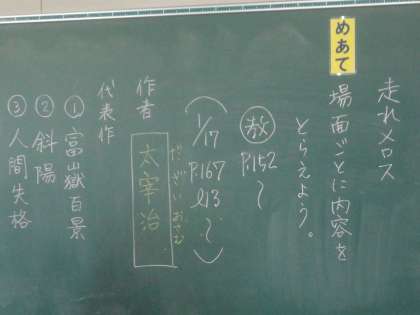 走れメロス
めあて
場面ごとに内容を
とらえよう。
教 P.152〜
(1/17 P.167 l13〜)
作者
太宰治
だざいおさむ
代表作
①富嶽百景
②斜陽
③人間失格